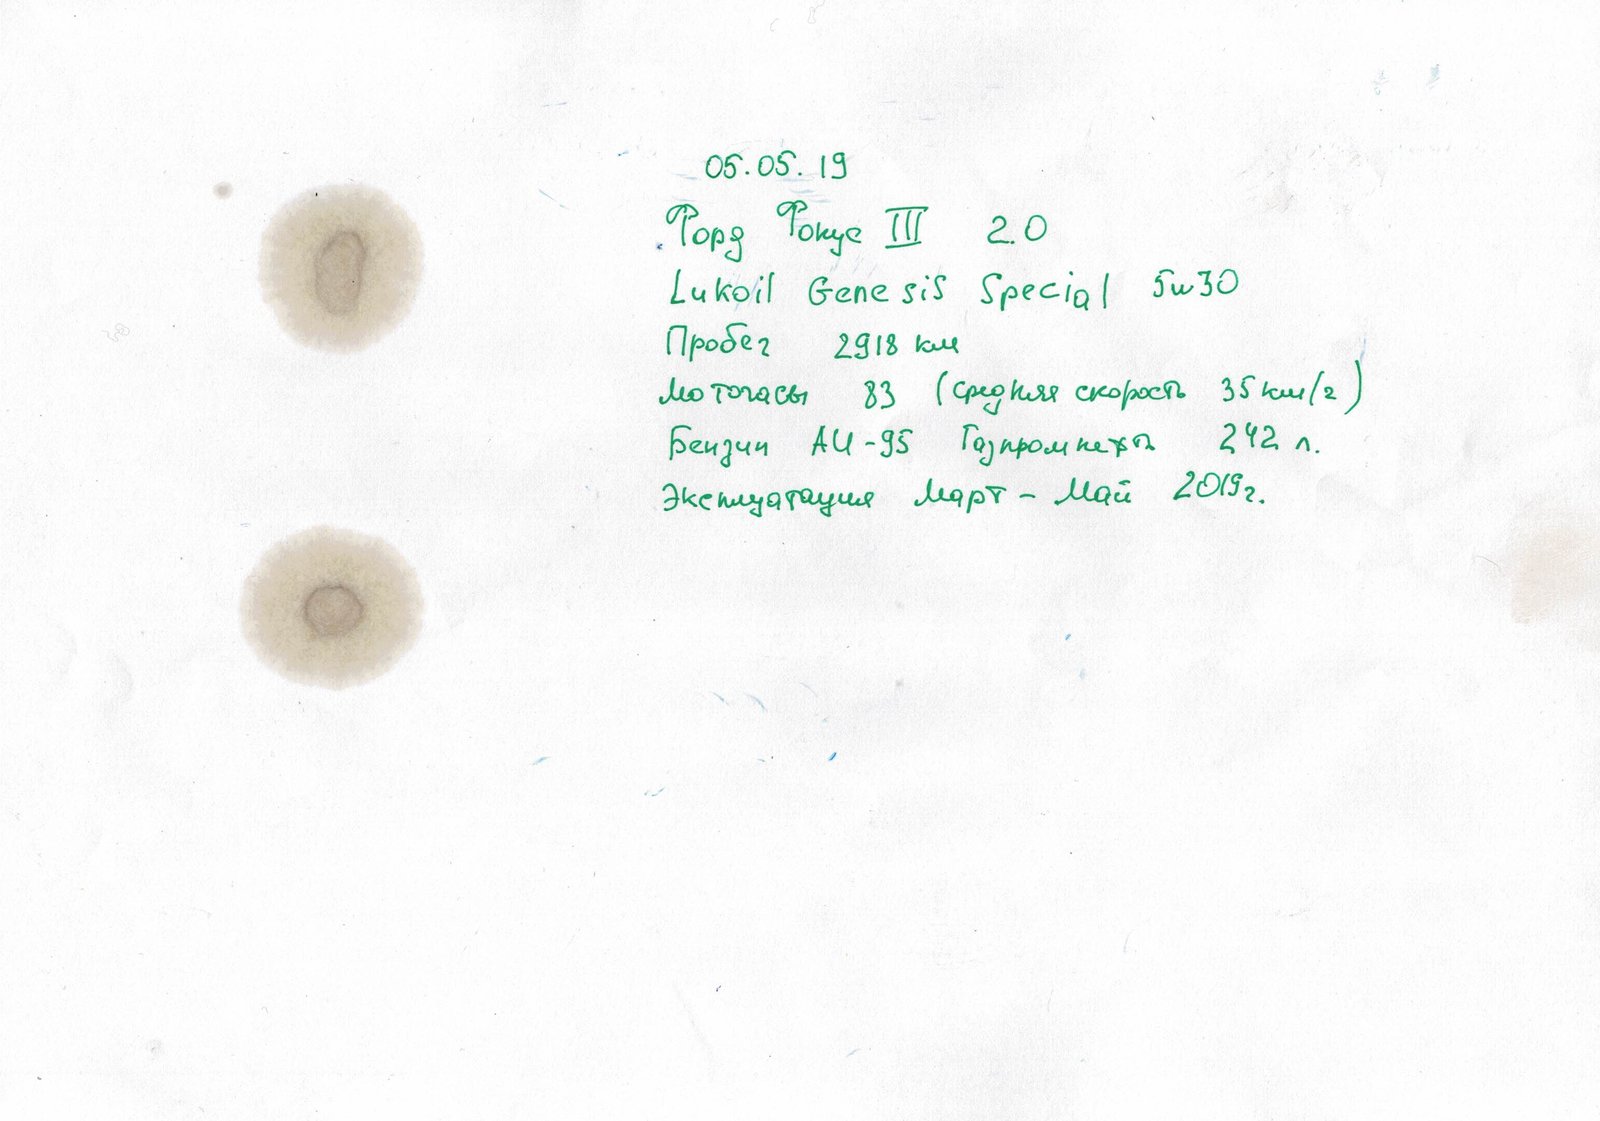 05.05.19
Форд Фокус III 2.0
Lukoil Genesis Special 5w30
Пробег 2918 км
Моточасы 83 (средняя скорость 35 км/г)
Бензин АИ-95 Газпромнефть 242 л.
Эксплуатация Март - Май 2019г.